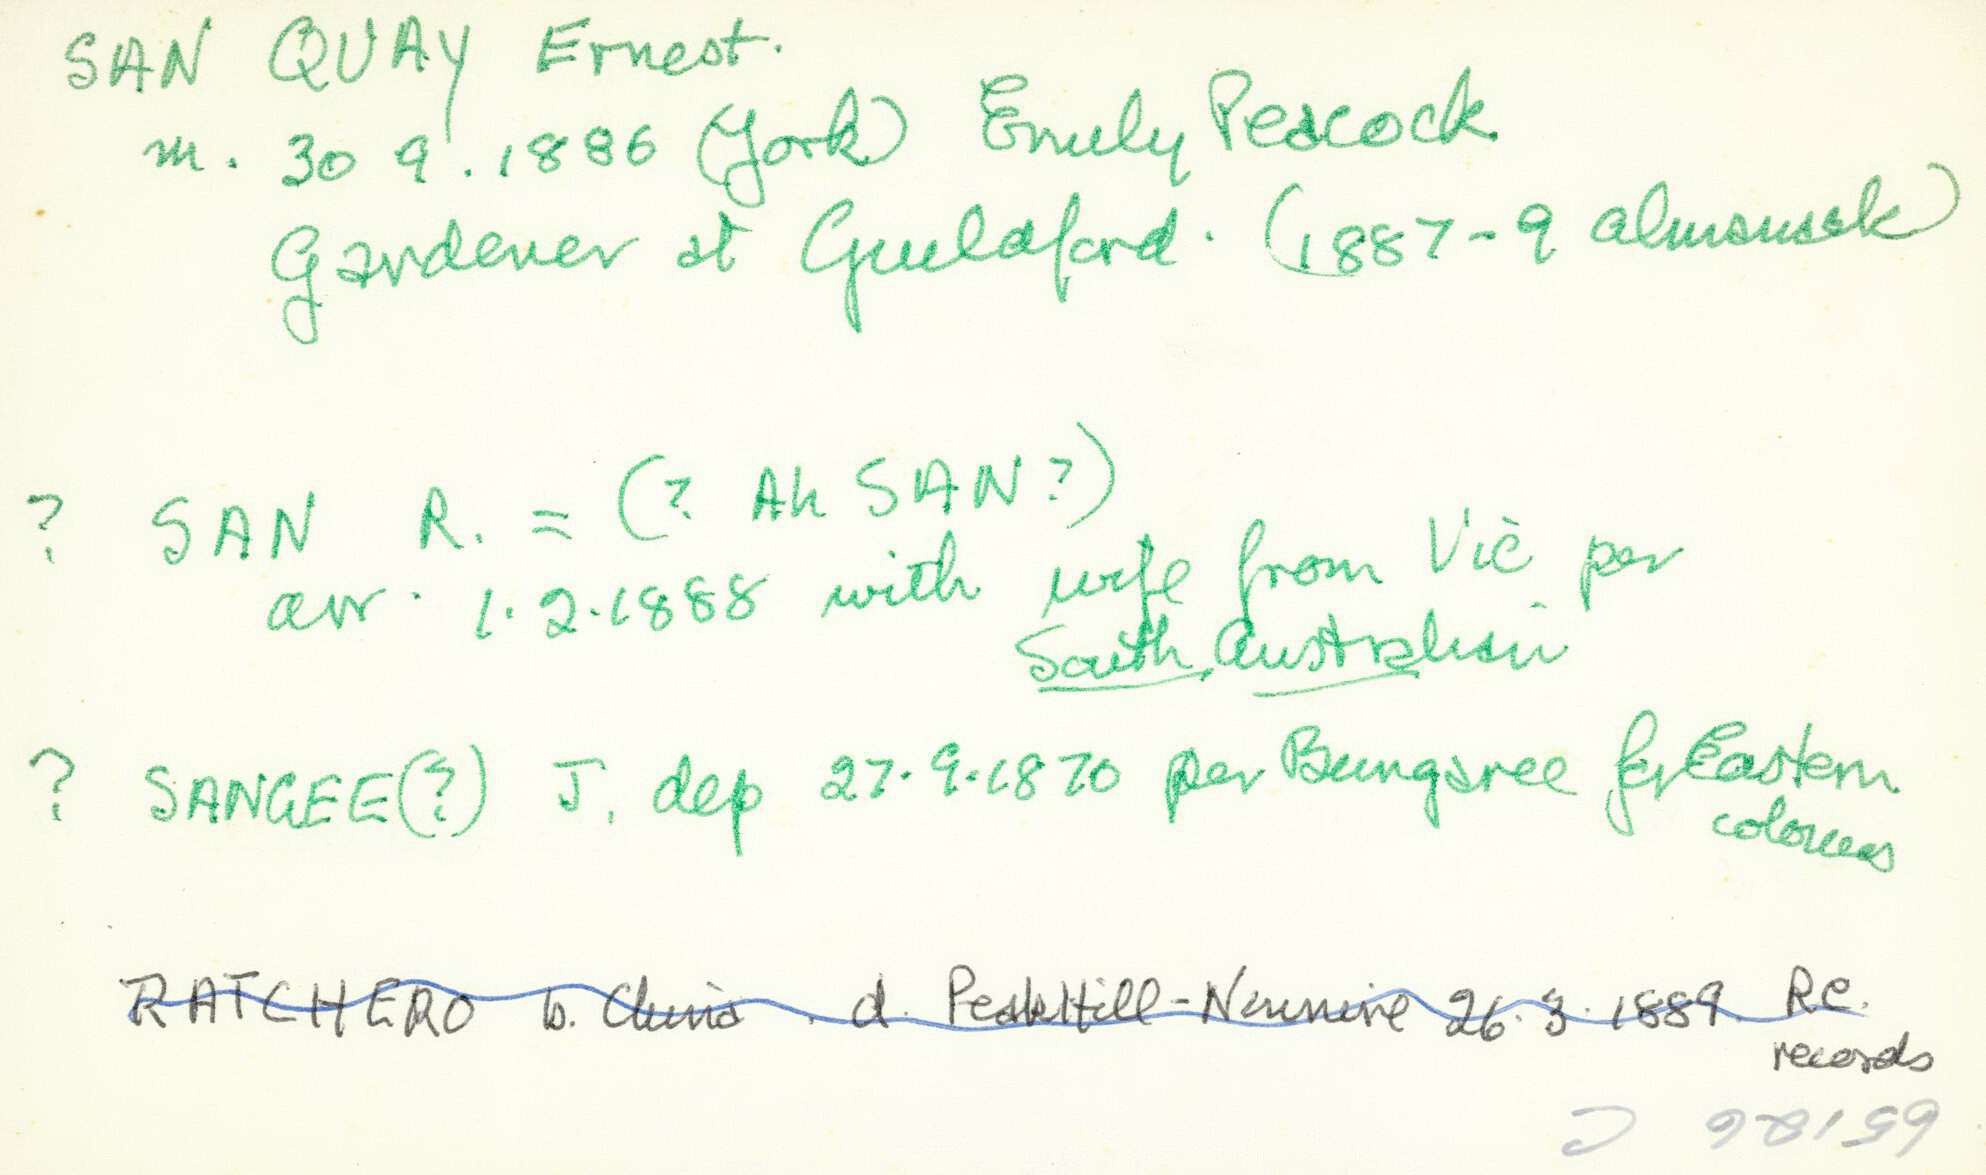 SAN QUAY Ernest.
m. 30 9. 1886 (York) Emily Peacock
Gardener at Guildford. (1887-9 almanack)
? SAN R. = (? Ah SAN?)
arr. 1.2.1888 with wife from Vic per
South Australian
? SANGEE(?) J. dep 27.9.1870 per Bungaree for Eastern
colonies
RATCHERO b. China. d. Peak Hill-Nannine 26.3.1889. RC.
records